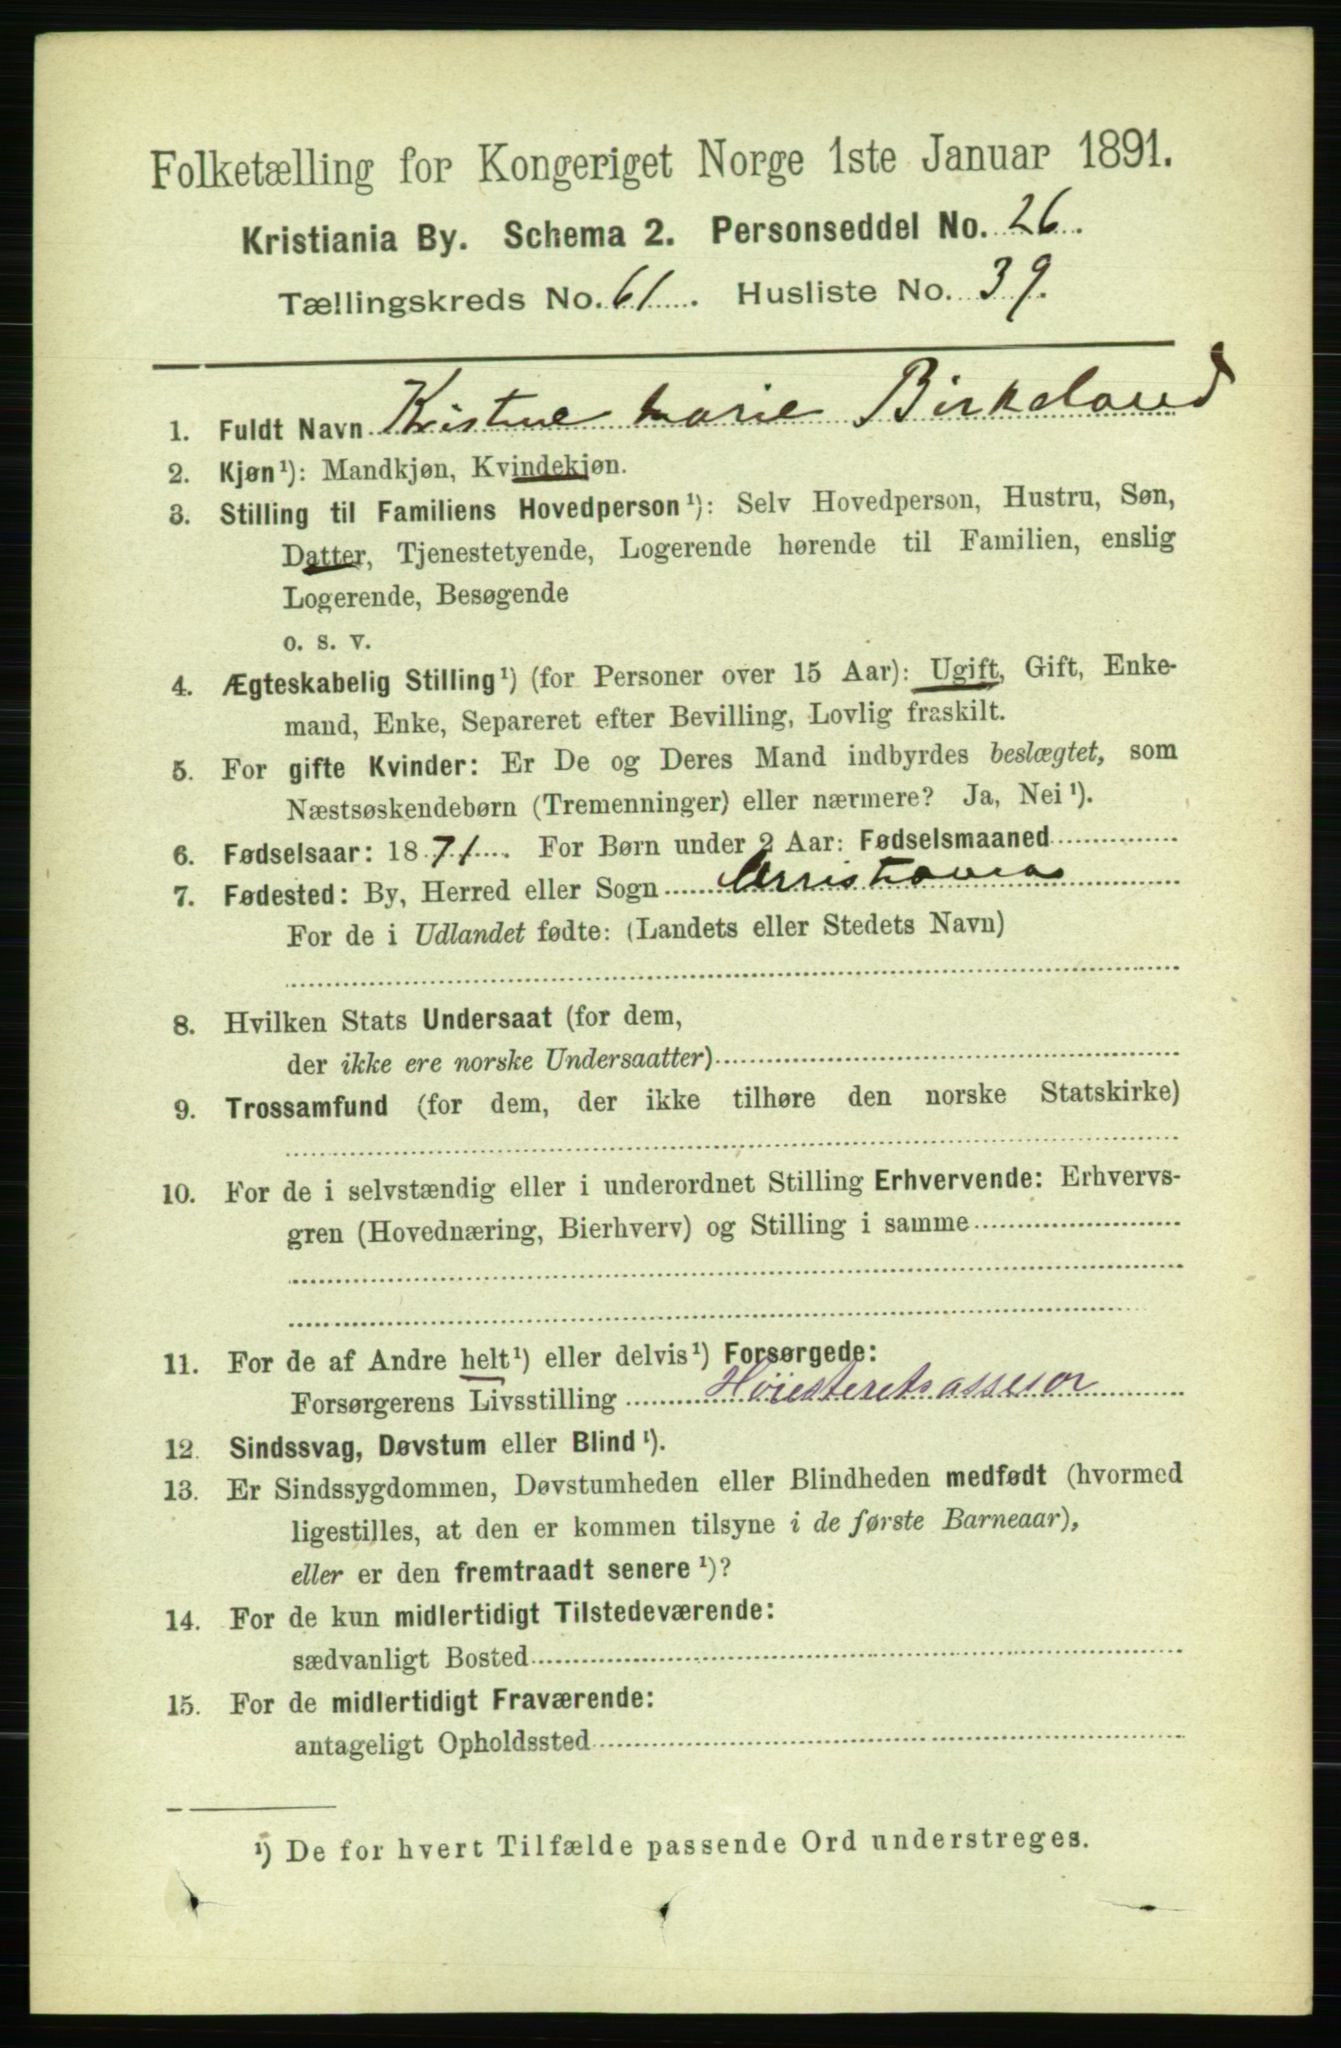 Folketælling for Kongeriget Norge 1ste Januar 1891.
Kristiania By. Schema 2. Personseddel No. 26.
Tællingskreds No. 61. Husliste No. 39.
1. Fuldt Navn Kristine Marie Birkeland
2. Kjøn¹): Mandkjøn, Kvindekjøn.
3. Stilling til Familiens Hovedperson¹): Selv Hovedperson, Hustru, Søn,
Datter, Tjenestetyende, Logerende hørende til Familien, enslig
Logerende, Besøgende
o. s. v.
4. Ægteskabelig Stilling¹) (for Personer over 15 Aar): Ugift, Gift, Enke-
mand, Enke, Separeret efter Bevilling, Lovlig fraskilt.
5. For gifte Kvinder: Er De og Deres Mand indbyrdes beslægtet, som
Næstsøskendebørn (Tremenninger) eller nærmere? Ja, Nei¹).
6. Fødselsaar: 1871. For Børn under 2 Aar: Fødselsmaaned
7. Fødested: By, Herred eller Sogn Christiania
For de i Udlandet fødte: (Landets eller Stedets Navn)
8. Hvilken Stats Undersaat (for dem,
der ikke ere norske Undersaatter)
9. Trossamfund (for dem, der ikke tilhøre den norske Statskirke)
10. For de i selvstændig eller i underordnet Stilling Erhvervende: Erhvervs-
gren (Hovednæring, Bierhverv) og Stilling i samme
11. For de af Andre helt¹) eller delvis¹) Forsørgede:
Forsørgerens Livsstilling Høiesteretsassesor
12. Sindssvag, Døvstum eller Blind¹).
13. Er Sindssygdommen, Døvstumheden eller Blindheden medfødt (hvormed
ligestilles, at den er kommen tilsyne i de første Barneaar),
eller er den fremtraadt senere¹)?
14. For de kun midlertidigt Tilstedeværende:
sædvanligt Bosted
15. For de midlertidigt Fraværende:
antageligt Opholdssted
¹) De for hvert Tilfælde passende Ord understreges.